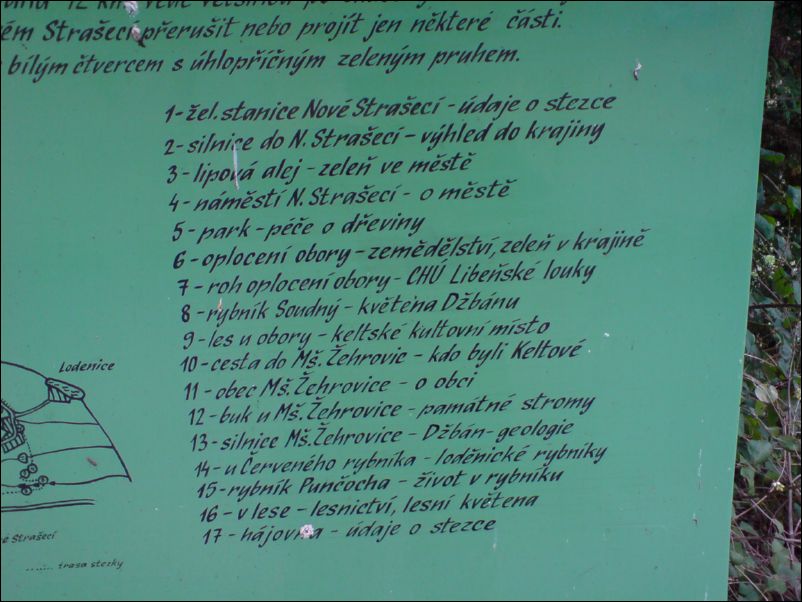 12 km vede většinou po
ém Strašecí přerušit nebo projít jen některé části.
bílým čtvercem s úhlopříčným zeleným pruhem.
1 - žel. stanice Nové Strašecí - údaje o stezce
2 - silnice do N. Strašecí - výhled do krajiny
3 - lipová alej - zeleň ve městě
4 - náměstí N. Strašecí - o městě
5 - park - péče o dřeviny
6 - oplocení obory - zemědělství, zeleň v krajině
7 - roh oplocení obory - CHÚ Libeňské louky
8 - rybník Soudný - květena Džbánu
9 - les u obory - keltské kultovní místo
10 - cesta do Mš. Žehrovic - kdo byli Keltové
11 - obec Mš. Žehrovice - o obci
12 - buk u Mš. Žehrovice - památné stromy
13 - silnice Mš. Žehrovice - Džbán - geologie
14 - u Červeného rybníka - loděnické rybníky
15 - rybník Punčocha - život v rybníku
16 - v lese - lesnictví, lesní květena
17 - hájovna - údaje o stezce
Lodenice
é Strašecí
trasa stezky